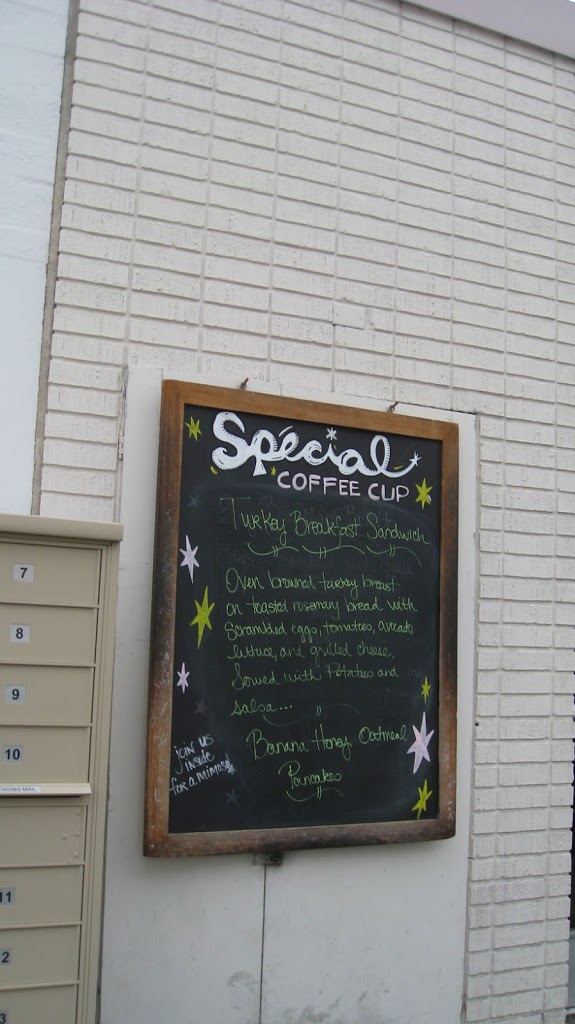 Special
COFFEE CUP
Turkey Breakfast Sandwich
Oven browned turkey breast
on toasted rosemary bread with
Scrambled eggs, tomatoes, avocado
lettuce, and grilled cheese.
Served with Potatoes and
salsa...
Banana Honey Oatmeal
Pancakes
join us
inside
for a mimosa
7
8
9
10
OUTGOING MAIL
11
2
3